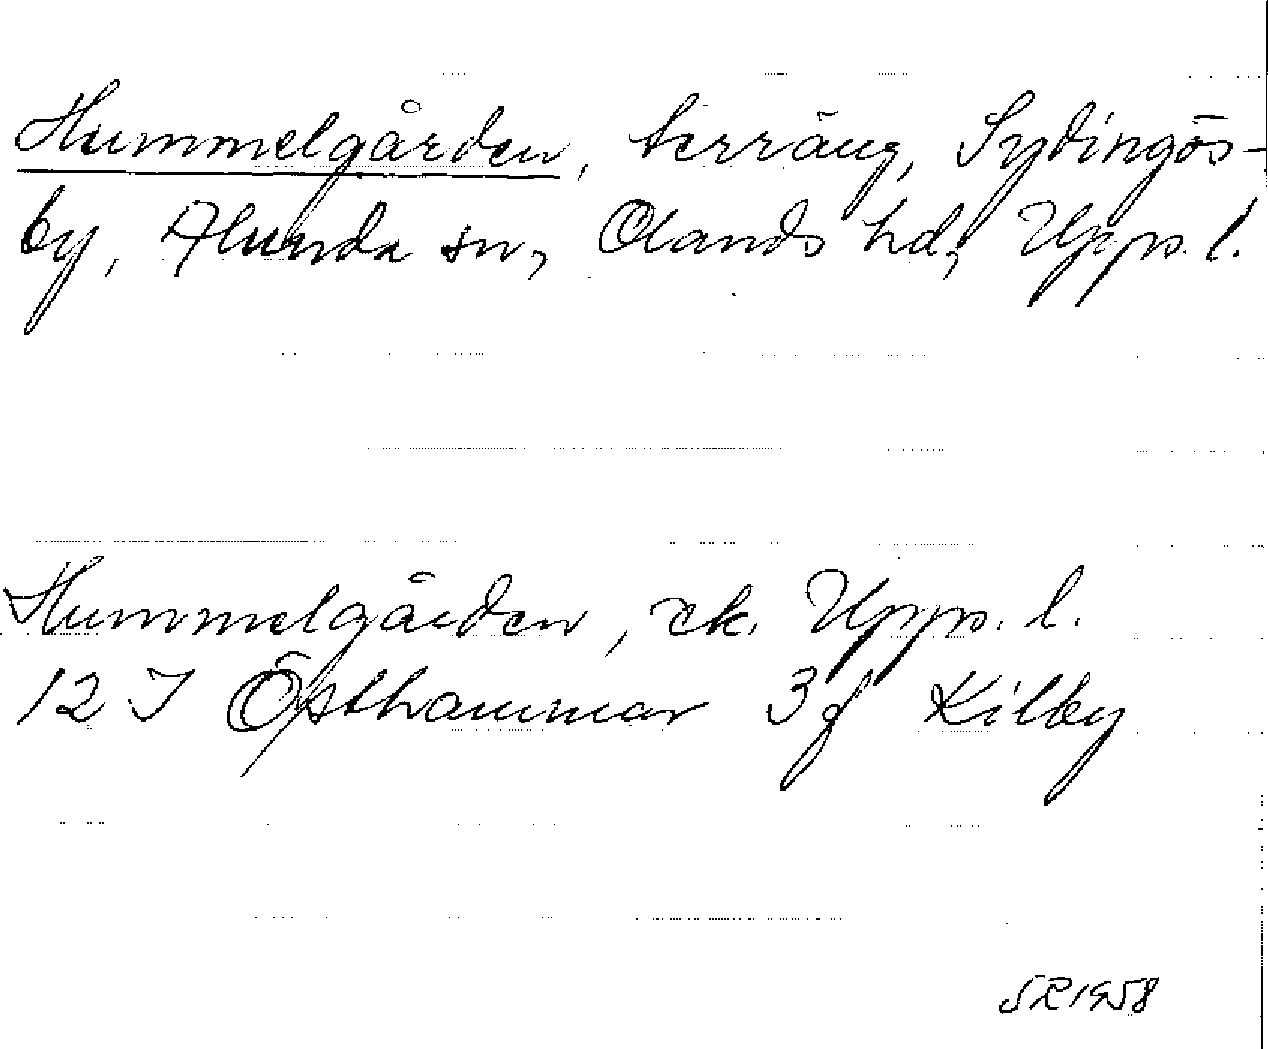 Hummelgården, terräng, Sydingös-
by, Alunda sn, Olands hd, Upps. l.
Hummelgården, ek. Upps. l.
12 I Östhammar 3 f Kilby
SR 1958